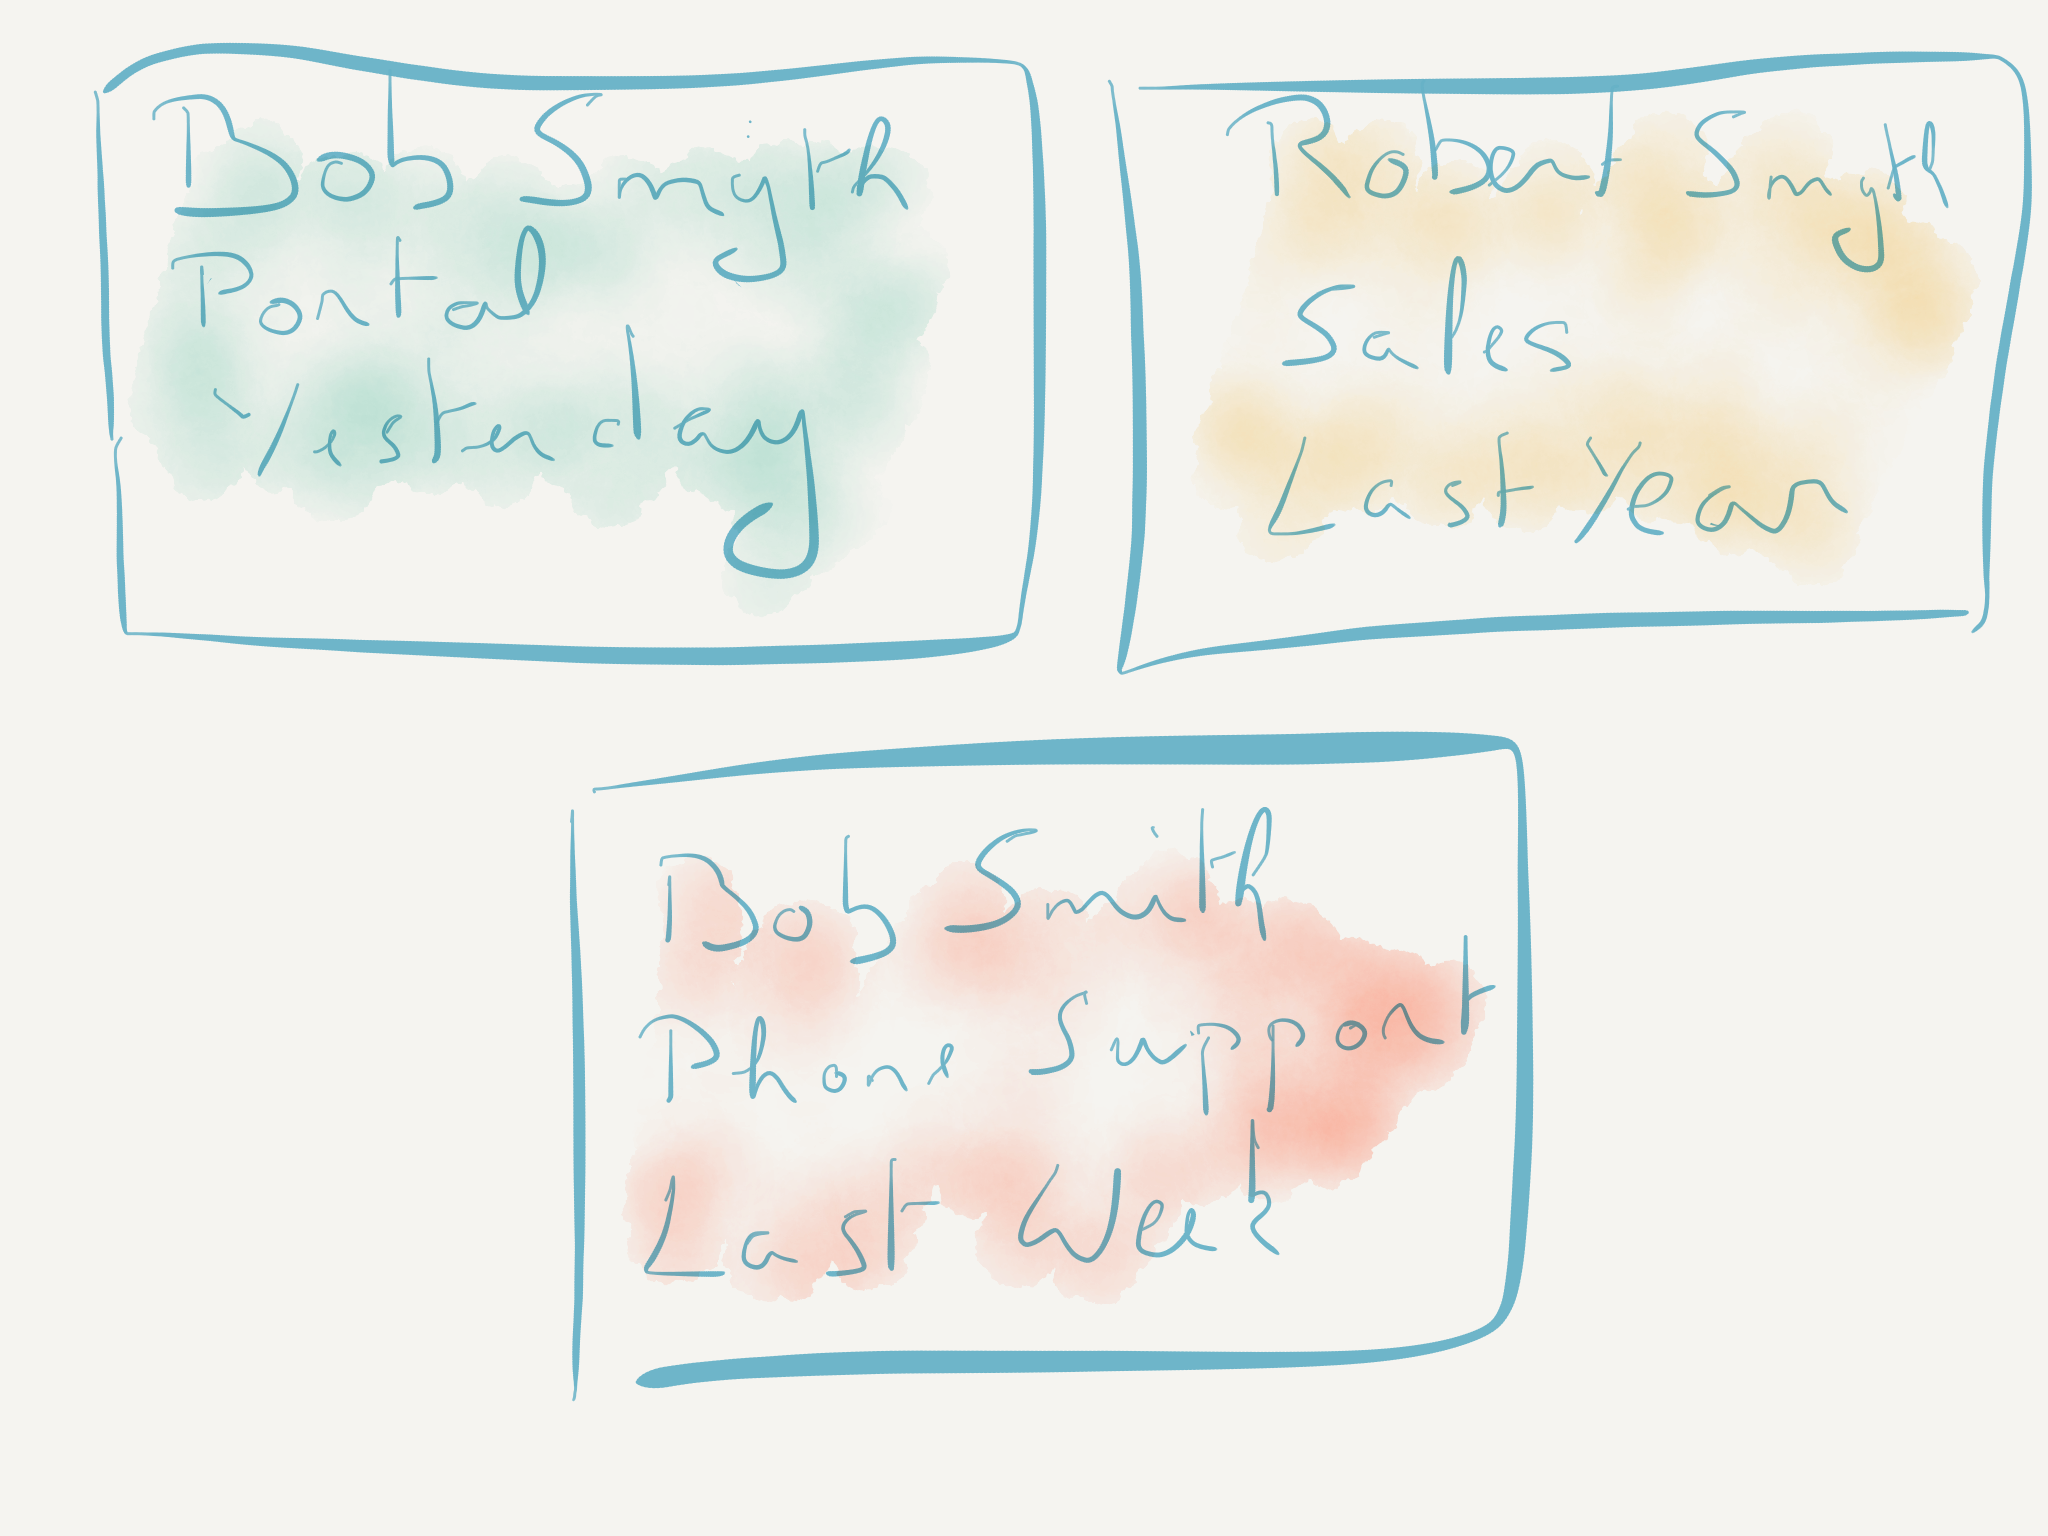 Bob Smyth
Portal
Yesterday
Robert Smyth
Sales
Last Year
Bob Smith
Phone Support
Last Week